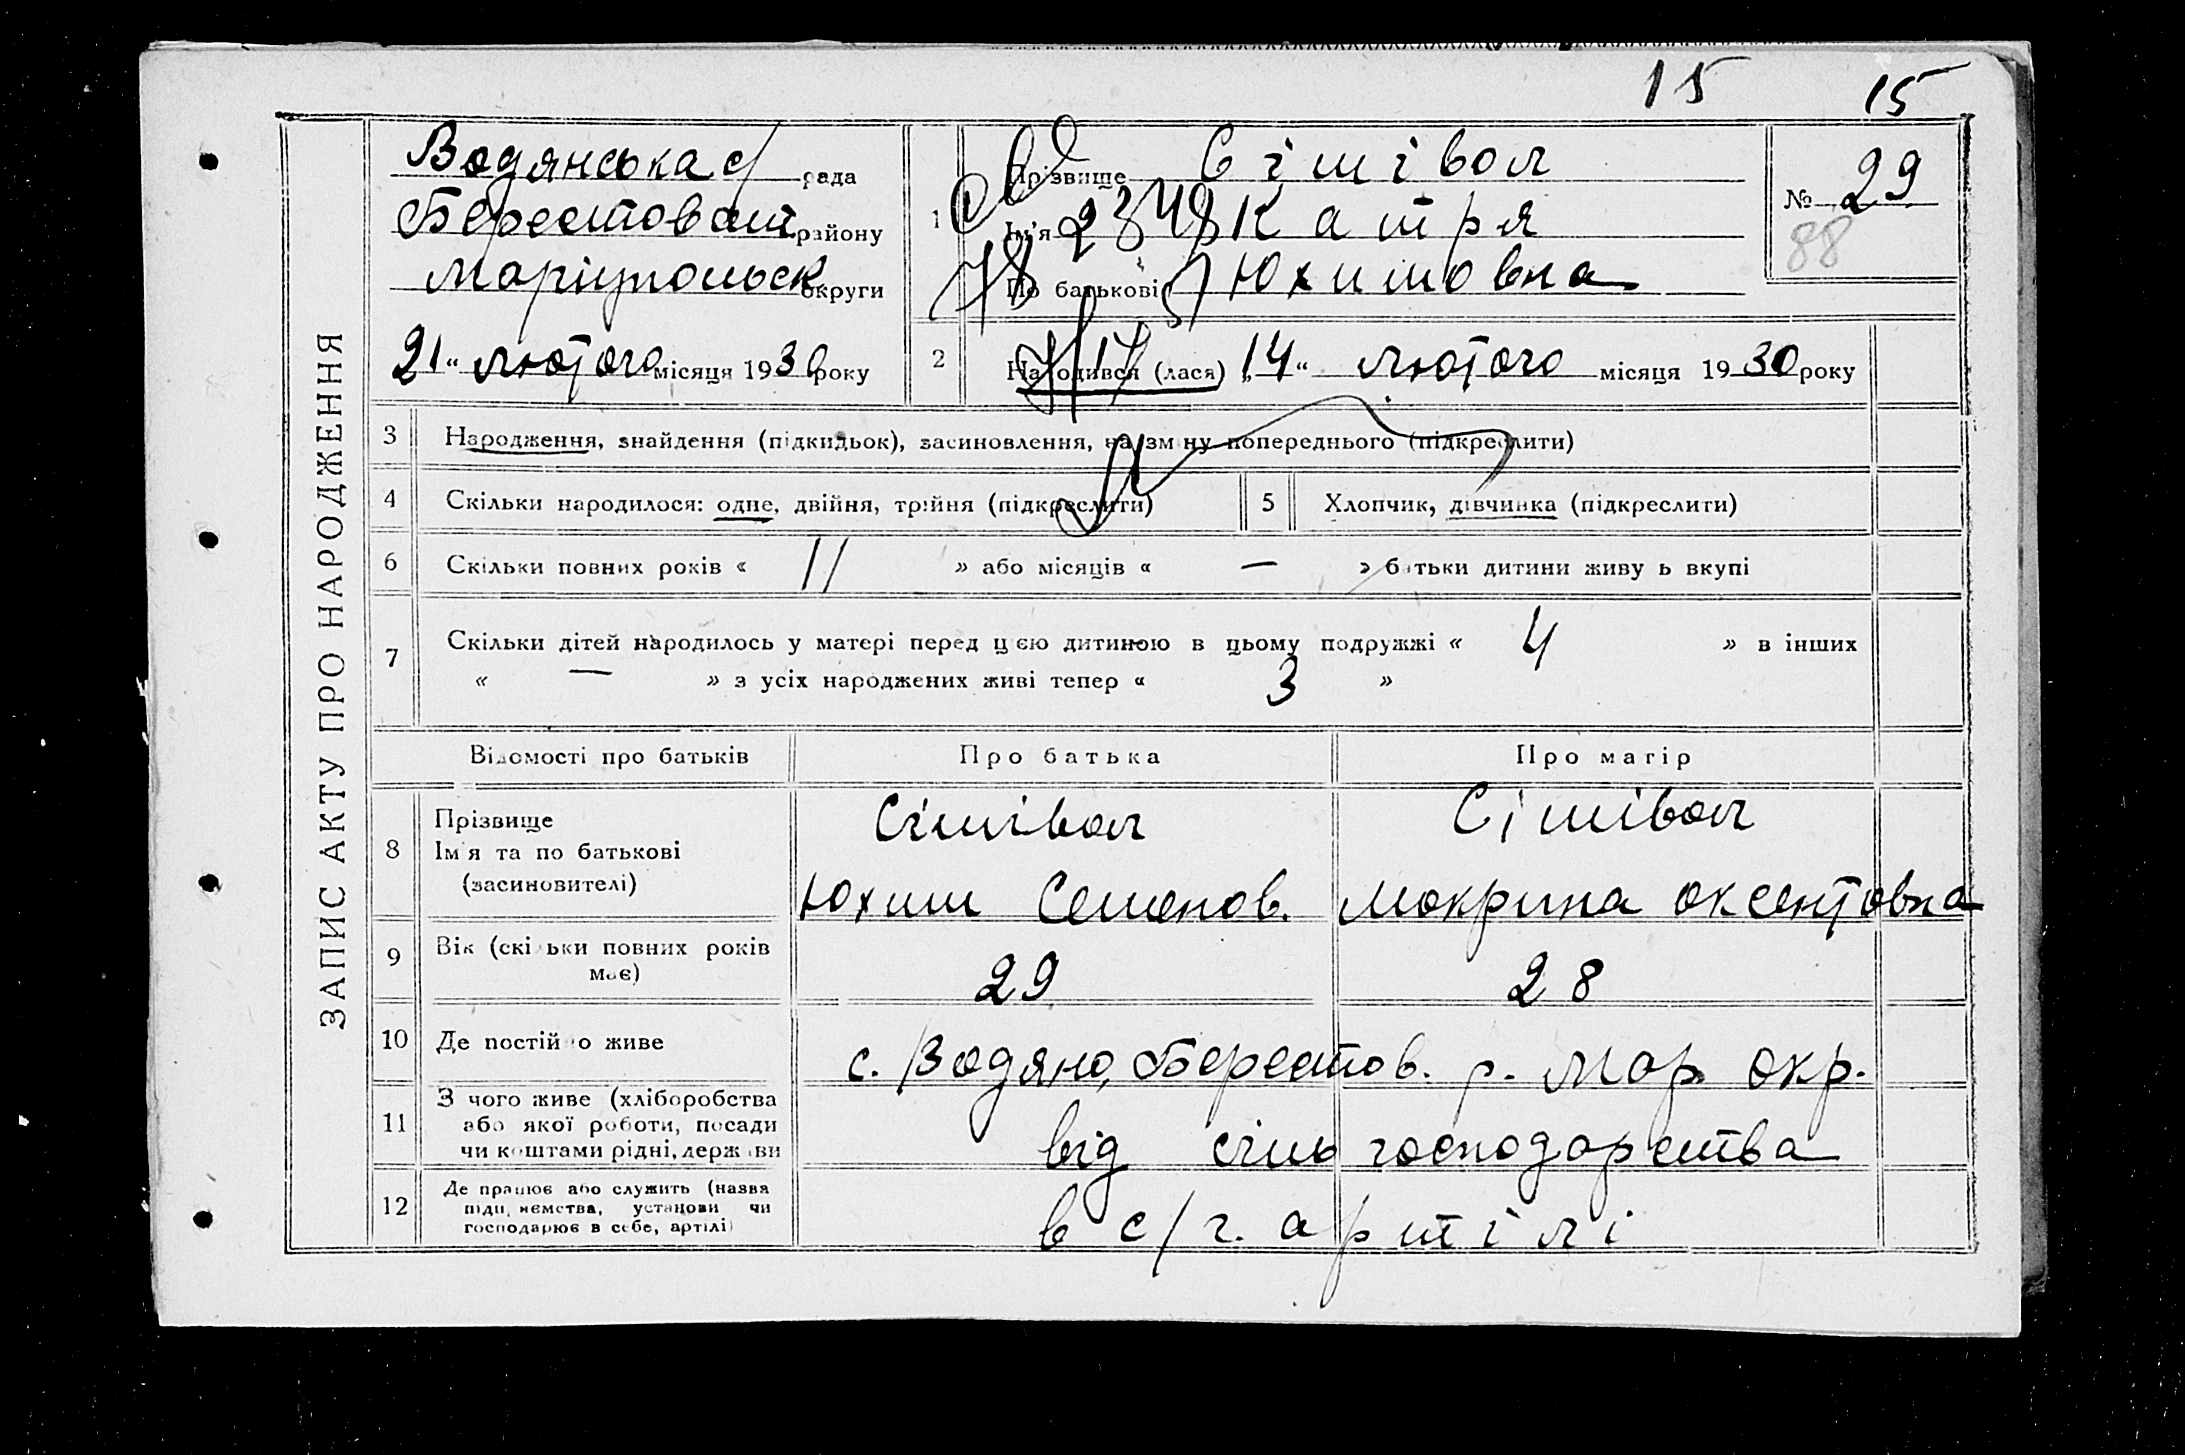 15 15
ЗАПИС АКТУ ПРО НАРОДЖЕННЯ
Водянська с/рада
Берестоват. району
Маріупольськ. округи
21 " лютого місяця 1930 року
1 Прізвище Сішівол
Ім'я Катря
По батькові Юхимовна
№ 29
88
2 Народився (лася) „14" лютого місяця 1930 року
3 Народження, знайдення (підкидьок), засиновлення, на зміну попереднього (підкреслити)
4 Скільки народилося: одне, двійня, трійня (підкреслити) 5 Хлопчик, дівчинка (підкреслити)
6 Скільки повних років « 11 » або місяців « — » батьки дитини живуть вкупі
7 Скільки дітей народилось у матері перед цією дитиною в цьому подружжі « 4 » в інших
« — » з усіх народжених живі тепер « 3 »
Відомості про батьків Про батька Про матір
8 Прізвище Сішівол Сішівол
Ім'я та по батькові
(засиновителі) Юхим Семенов. Мокрина Оксентовна
9 Вік (скільки повних років має) 29 28
10 Де постійно живе с. Водяно, Берестов. р. Мар окр.
11 З чого живе (хліборобства
або якої роботи, посади
чи коштами рідні, держави від сіль господарства
12 Де працює або служить (назва
підприємства, установи чи
господарює в себе, артілі) в с/г. артілі